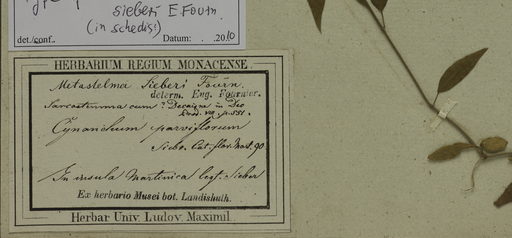 sieberi E. Fourn.
(in schedis!)
det./conf. Datum: . .2010
HERBARIUM REGIUM MONACENSE.
Metastelma Sieberi Fourn.
determ. Eug. Fournier.
Sarcostemma cum? Decaisne in Dec
Prod. VIII. p. 551.
Cynanchum parviflorum
Sieb. Cat. flor. Mart. 90
In insula Martinica legt. Sieber
Ex herbario Musei bot. Landishuth.
Herbar. Univ. Ludov. Maximil.